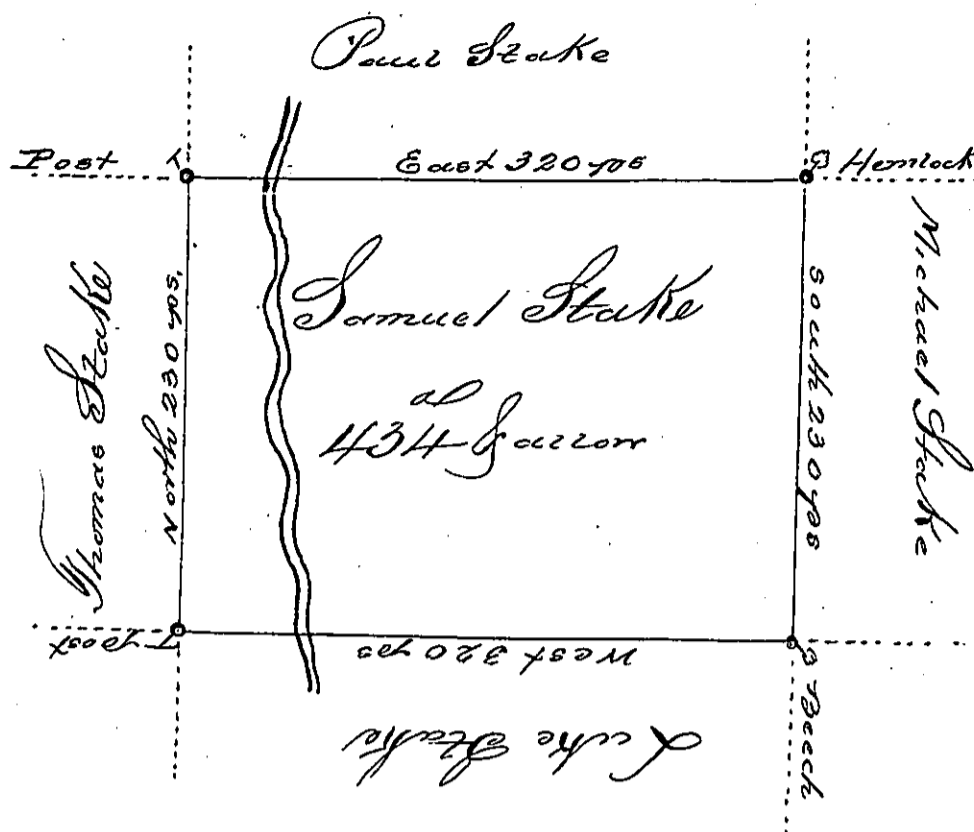 Paul Stake
Post
East 320 ps
Hemlock
Thomas Stake
North 230 ps.
Samuel Stake
al
434
South 230 ps
Michael Stake
post
West 320 ps
Beech
Luke Stake